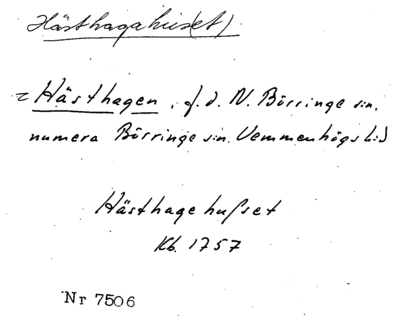 Hästhagahus(et)
= Hästhagen, f.d. N. Börringe sn.
numera Börringe sn. Vemmenhögs hd
Hästhagehusset
Kb. 1757
Nr 7506